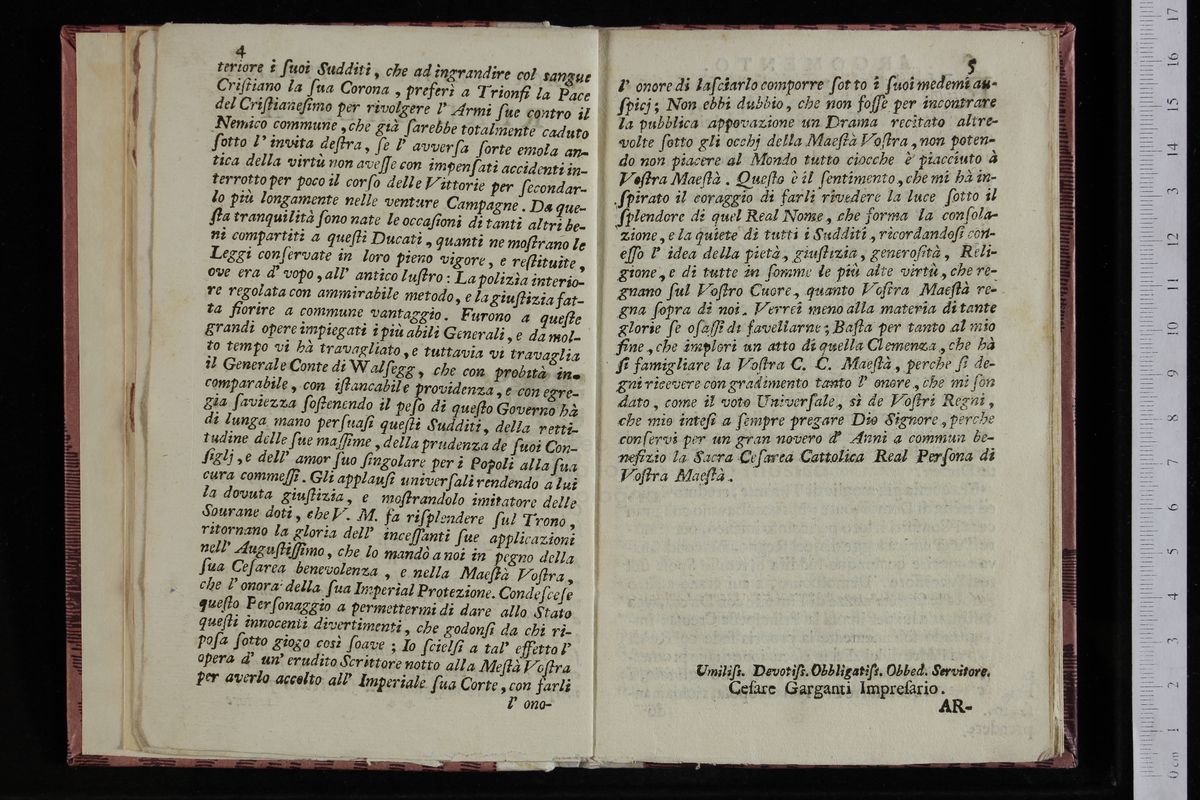 4
teriore i ſuoi Sudditi, che ad ingrandire col sangue
Criſtiano la ſua Corona, preferì a Trionfi la Pace
del Criſtianeſimo per rivolgere l' Armi ſue contro il
Nemico commune, che già ſarebbe totalmente caduto
ſotto l' invita deſtra, ſe l' avverſa ſorte emola an-
tica della virtù non aveſſe con impenſati accidenti in-
terrotto per poco il corſo delle Vittorie per ſecondar-
lo più longamente nelle venture Campagne. Da que-
ſta tranquilità ſono nate le occaſioni di tanti altri be-
ni compartiti a queſti Ducati, quanti ne moſtrano le
Leggi conſervate in loro pieno vigore, e reſtituite,
ove era d' vopo, all' antico luſtro: La polizia interio-
re regolata con ammirabile metodo, e la giuſtizia fat-
ta fiorire a commune vantaggio. Furono a queſte
grandi opere impiegati i più abili Generali, e da mol-
to tempo vi hà travagliato, e tuttavia vi travaglia
il Generale Conte di Walſegg, che con probità in-
comparabile, con iſtancabile providenza, e con egre-
gia ſaviezza ſoſtenendo il peſo di queſto Governo hà
di lunga mano perſuaſi queſti Sudditi, della retti-
tudine delle ſue maſſime, della prudenza de ſuoi Con-
ſiglj, e dell' amor ſuo ſingolare per i Popoli alla ſua
cura commeſſi. Gli applauſi univerſali rendendo a lui
la dovuta giuſtizia, e moſtrandolo imitatore delle
Sourane doti, che V. M. fa riſplendere ſul Trono,
ritornano la gloria dell' inceſſanti ſue applicazioni
nell' Auguſtiſſimo, che lo mandò a noi in pegno della
ſua Ceſarea benevolenza, e nella Maeſtà Voſtra,
che l' onora della ſua Imperial Protezione. Condeſceſe
queſto Perſonaggio a permettermi di dare allo Stato
queſti innocenii divertimenti, che godonſi da chi ri-
poſa ſotto giogo così ſoave; Io ſcielſi a tal' effetto l'
opera d' un' erudito Scrittore notto alla Meſtà Voſtra
per averlo accolto all' Imperiale ſua Corte, con farli
l' ono-
5
l' onore di laſciarlo comporre ſotto i ſuoi medemi au-
ſpicj; Non ebbi dubbio, che non foſſe per incontrare
la pubblica appovazione un Drama recitato altre-
volte ſotto gli occhj della Maeſtà Voſtra, non poten-
do non piacere al Mondo tutto ciocche è piacciuto à
Voſtra Maeſtà. Queſto è il ſentimento, che mi hà in-
ſpirato il coraggio di farli rivedere la luce ſotto il
ſplendore di quel Real Nome, che forma la conſola-
zione, e la quiete di tutti i Sudditi, ricordandoſi con-
eſſo l' idea della pietà, giuſtizia, generoſità, Reli-
gione, e di tutte in ſomme le più alte virtù, che re-
gnano ſul Voſtro Cuore, quanto Voſtra Maeſtà re-
gna ſopra di noi. Verrei meno alla materia di tante
glorie ſe oſaſſi di favellarne; Baſta per tanto al mio
fine, che implori un atto di quella Clemenza, che hà
ſi famigliare la Voſtra C. C. Maeſtà, perche ſi de-
gni ricevere con gradimento tanto l' onore, che mi ſon
dato, come il voto Univerſale, sì de Voſtri Regni,
che mio inteſi a ſempre pregare Dio Signore, perche
conſervi per un gran novero d' Anni a commun be-
nefizio la Sacra Ceſarea Cattolica Real Perſona di
Voſtra Maeſtà.
Umiliſs. Devotiſs. Obbligatiſs. Obbed. Servitore.
Ceſare Garganti Impreſario.
AR-
0 cm 1 2 3 4 5 6 7 8 9 10 11 12 13 14 15 16 17